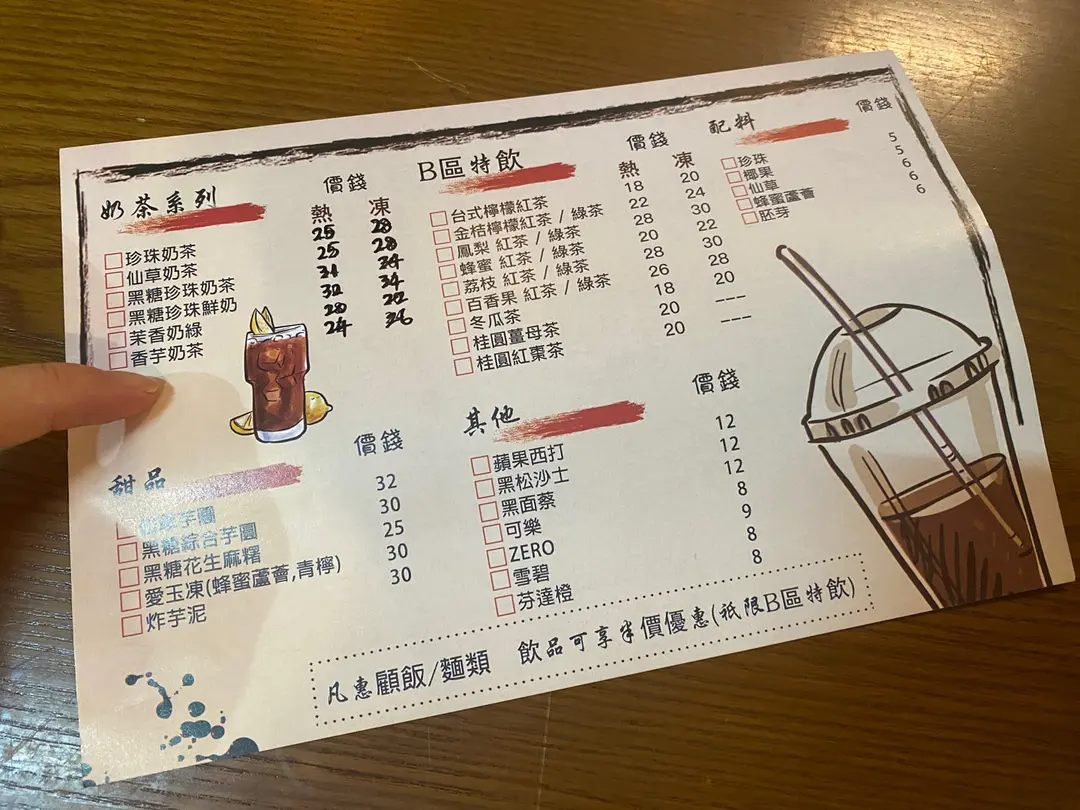 奶茶系列 價錢
熱 凍
珍珠奶茶 25 28
仙草奶茶 25 28
黑糖珍珠奶茶 31 34
黑糖珍珠鮮奶 32 34
茉香奶綠 20 22
香芋奶茶 24 26
B區特飲 價錢
熱 凍
台式檸檬紅茶 18 20
金桔檸檬紅茶 / 綠茶 22 24
鳳梨 紅茶 / 綠茶 28 30
蜂蜜 紅茶 / 綠茶 20 22
荔枝 紅茶 / 綠茶 28 30
百香果 紅茶 / 綠茶 26 28
冬瓜茶 18 20
桂圓薑母茶 20 ---
桂圓紅棗茶 20 ---
配料 價錢
珍珠 5
椰果 5
仙草 6
蜂蜜蘆薈 6
胚芽 6
甜品 價錢
芋圓 32
黑糖綜合芋圓 30
黑糖花生麻糬 25
愛玉凍(蜂蜜蘆薈,青檸) 30
炸芋泥 30
其他 價錢
蘋果西打 12
黑松沙士 12
黑面蔡 12
可樂 8
ZERO 9
雪碧 8
芬達橙 8
凡惠顧飯/麵類 飲品可享半價優惠(祇限B區特飲)